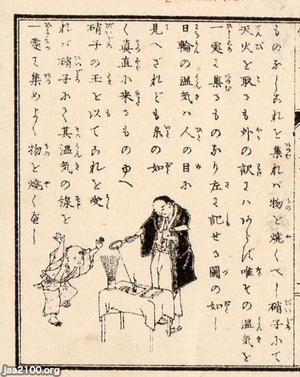 ものなりこれを集れバ物を焼くべし硝子にて
天火を取るも外の訳にハあらず唯その温気を
一處に集るものなり左に記せる圖の如し
日輪の温気ハ人の目に
見へざれども糸の如
く真直に来るものゆへ
硝子の玉を以てこれを受
れバ硝子にて其温気の線を
一處に集めよく物を焼くなり
jaa2100.org